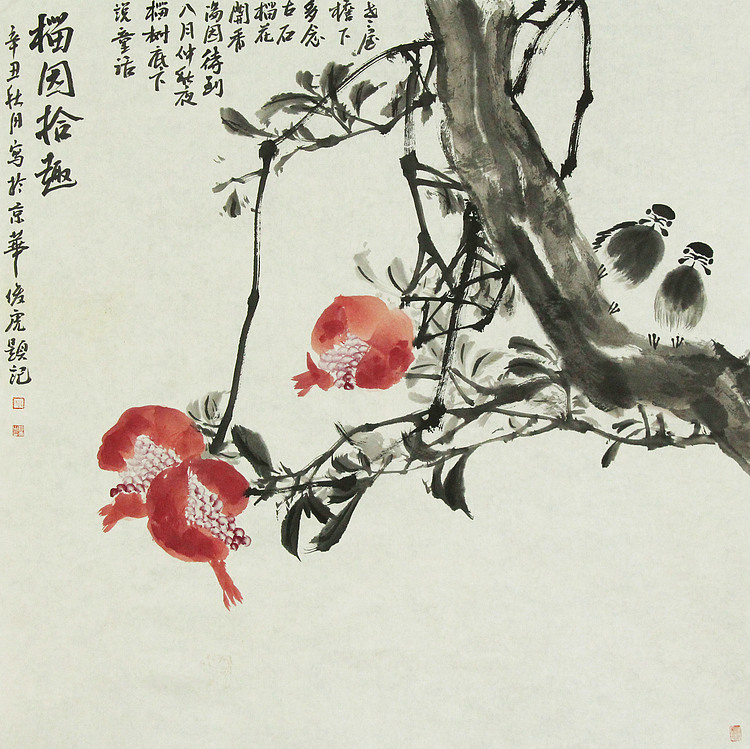 老屋
檐下
多念
古石
榴花
開香
满园待到
八月仲秋夜
榴树底下
说童话
榴园拾趣
辛丑秋月寫於京華俊虎題記